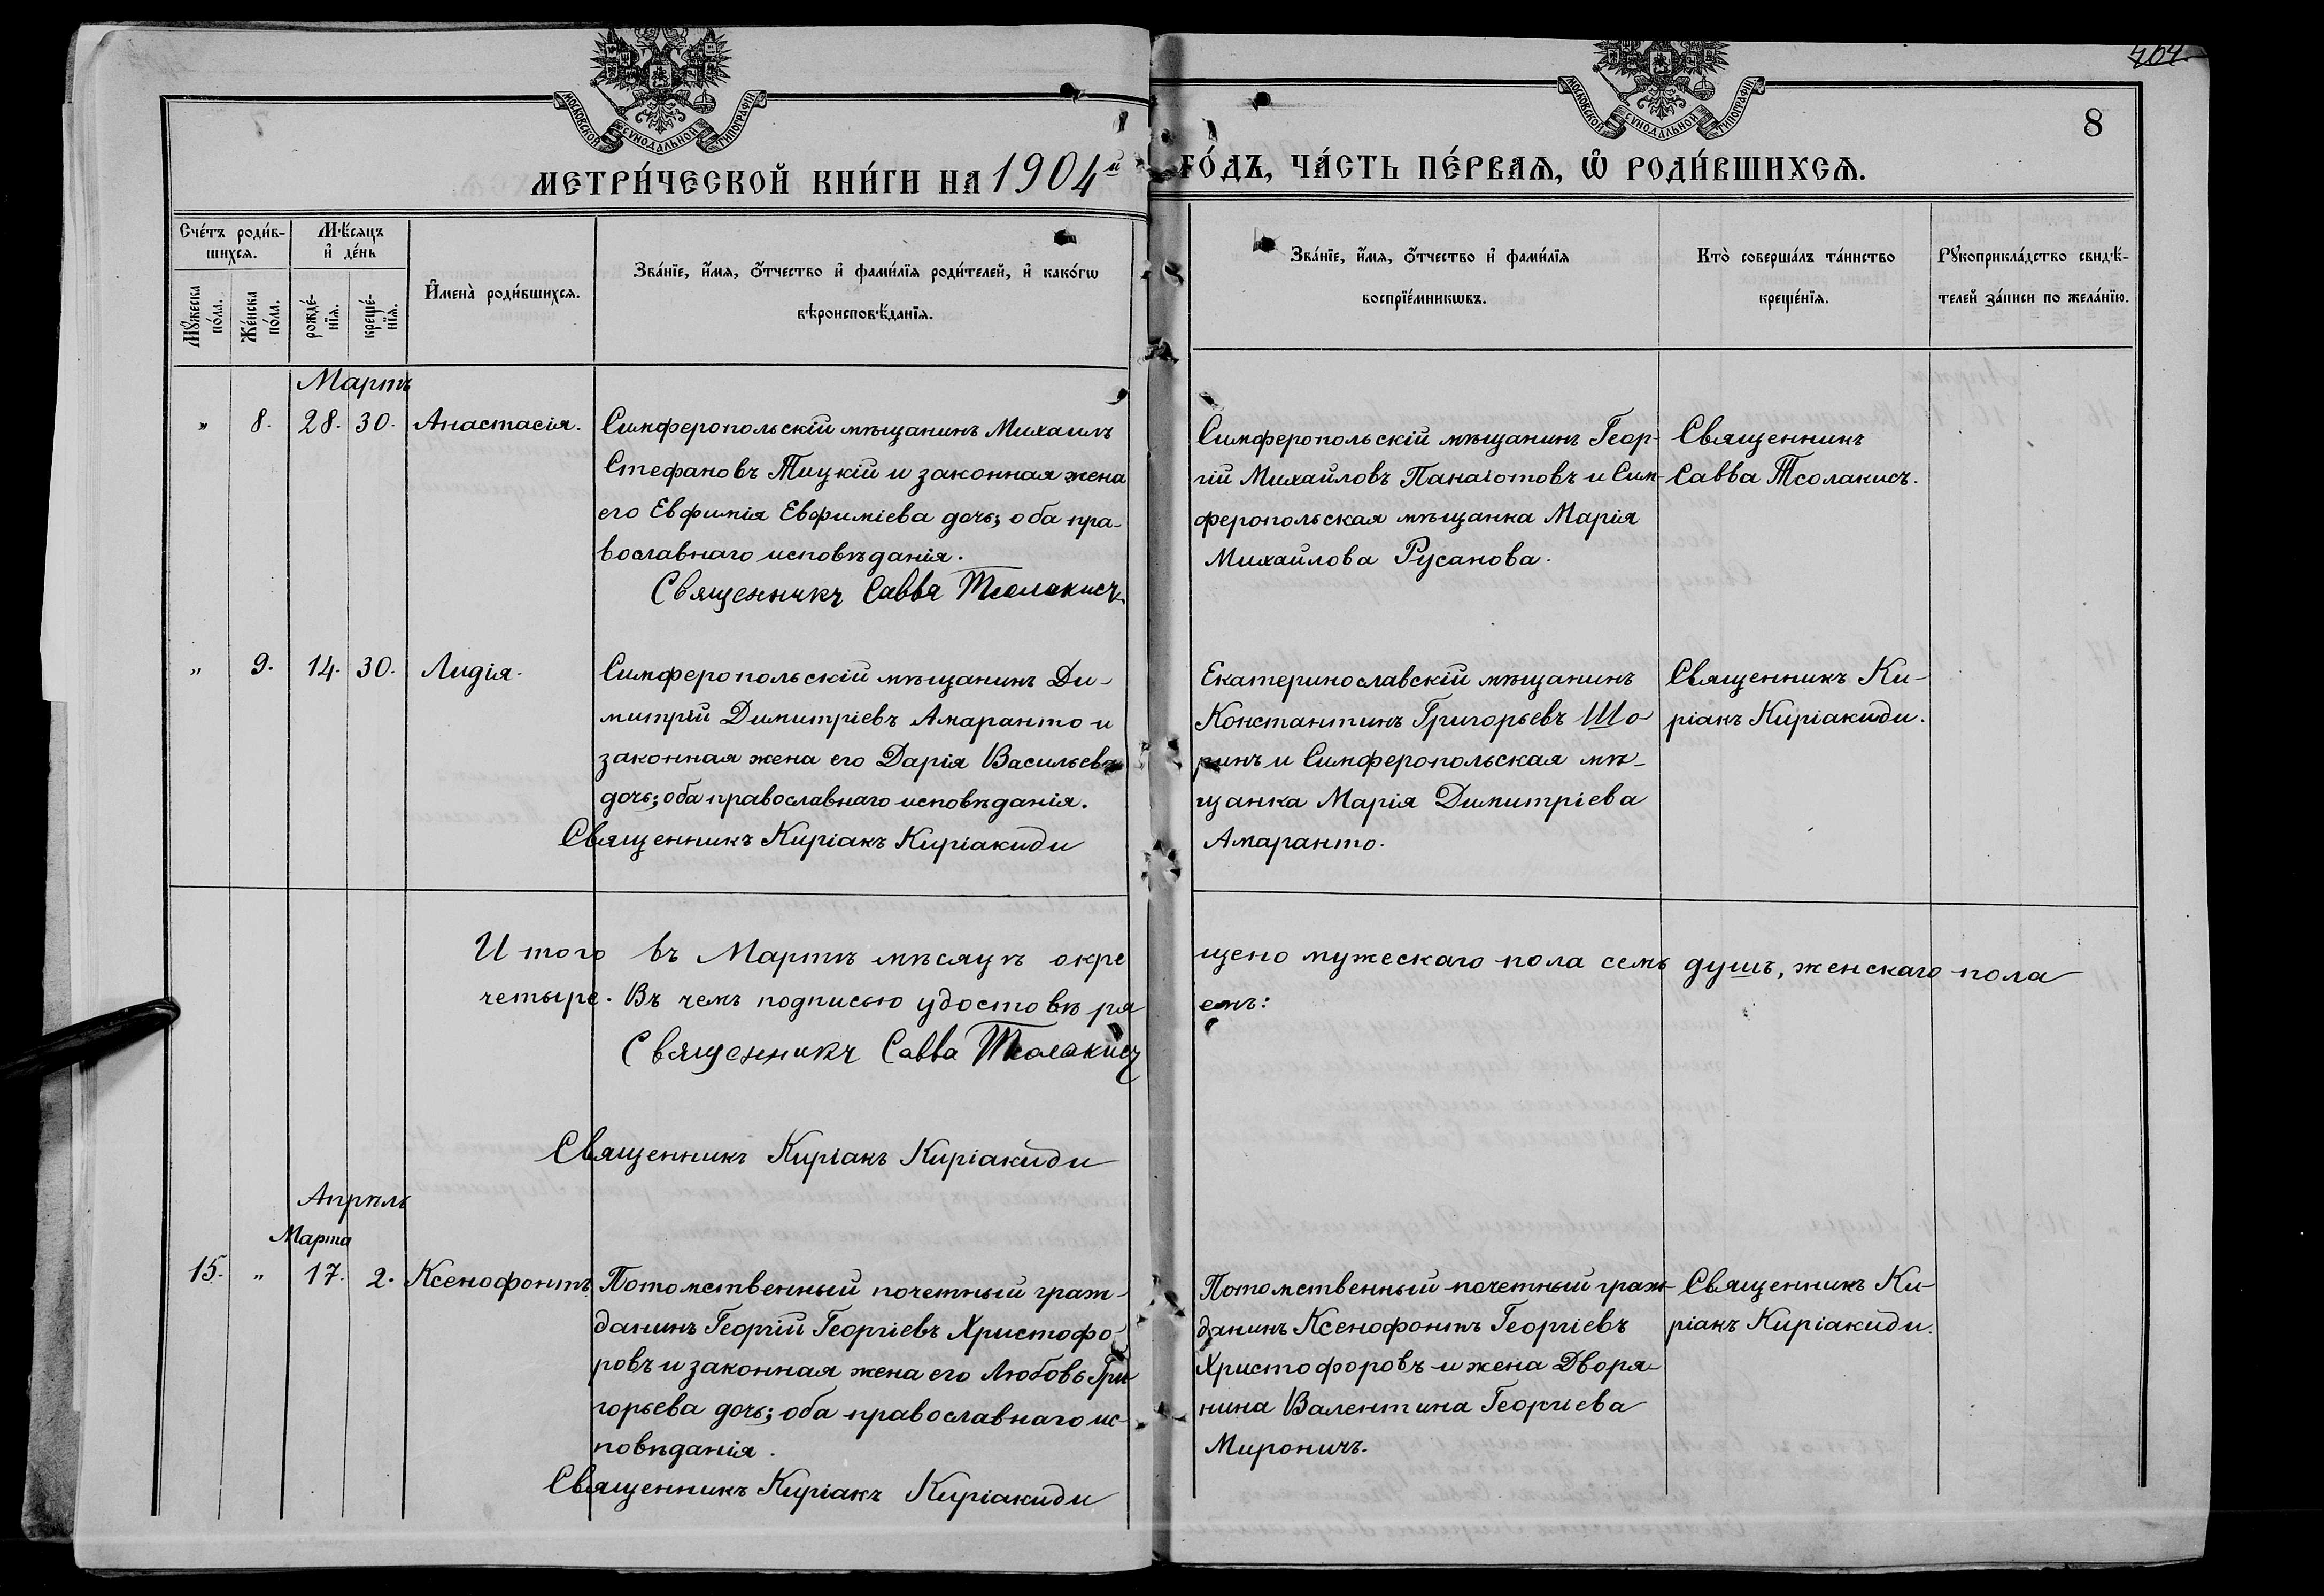 404.
8
МОСКОВСКОЙ СѴНОДАЛЬНОЙ ТИПОГРАФІИ
МОСКОВСКОЙ СѴНОДАЛЬНОЙ ТИПОГРАФІИ
МЕТРИ́ЧЕСКОЙ КНИ́ГИ НА 1904й ГО́ДЪ, ЧА́СТЬ ПЕ́РВАѦ, Ѽ РОДИ́ВШИХСѦ.
Сче́тъ роди́в-
шихсѧ.
Мѣ́сѧцъ
и҆ де́нь
Мꙋ́жеска по́ла.
Же́нска по́ла.
рожде́-нїѧ.
креще́-нїѧ.
И҆мена̀ роди́вшихсѧ.
Зва́нїе, и҆́мѧ, ѻ҆́тчество и҆ фами́лїѧ роди́телей, и҆ како́гѡ
вѣроисповѣ́данїѧ.
Зва́нїе, и҆́мѧ, ѻ҆́тчество и҆ фами́лїѧ
воспрїе́мникѡвъ.
Кто̀ соверша́лъ та́инство
креще́нїѧ.
Рꙋкоприкла́дство свидѣ́-
телей за́писи по жела́нїю.
Мартъ
" 8. 28. 30. Анастасія.
Симферопольскій мѣщанинъ Михаилъ
Стефановъ Тицкій и законная жена
его Евфимія Евфиміева дочь; оба пра-
вославнаго исповѣданія.
Священникъ Савва Тсолакисъ
Симферопольскій мѣщанинъ Геор-
гій Михайловъ Панаіотовъ и Сим-
феропольская мѣщанка Марія
Михайлова Русанова.
Священникъ
Савва Тсолакисъ.
" 9. 14. 30. Лидія.
Симферопольскій мѣщанинъ Ди-
митрій Димитріевъ Амаранто и
законная жена его Дарія Васильева
дочь; оба православнаго исповѣданія.
Священникъ Киріакъ Киріакиди
Екатеринославскій мѣщанинъ
Константинъ Григорьевъ Шо-
ринъ и Симферопольская мѣ-
щанка Марія Димитріева
Амаранто.
Священникъ Ки-
ріакъ Киріакиди.
Итого въ Мартѣ мѣсяцѣ окрещено мужескаго пола семь душъ, женскаго пола
четыре. Въ чемъ подписью удостовѣряемъ:
Священникъ Савва Тсолакисъ
Священникъ Киріакъ Киріакиди
Апрѣль
Марта
15. " 17. 2. Ксенофонтъ.
Потомственный почетный граж-
данинъ Георгій Георгіевъ Христофо-
ровъ и законная жена его Любовь Гри-
горьева дочь; оба православнаго ис-
повѣданія.
Священникъ Киріакъ Киріакиди
Потомственный почетный граж-
данинъ Ксенофонтъ Георгіевъ
Христофоровъ и жена Дворя-
нина Валентина Георгіева
Мироничъ.
Священникъ Ки-
ріакъ Киріакиди.